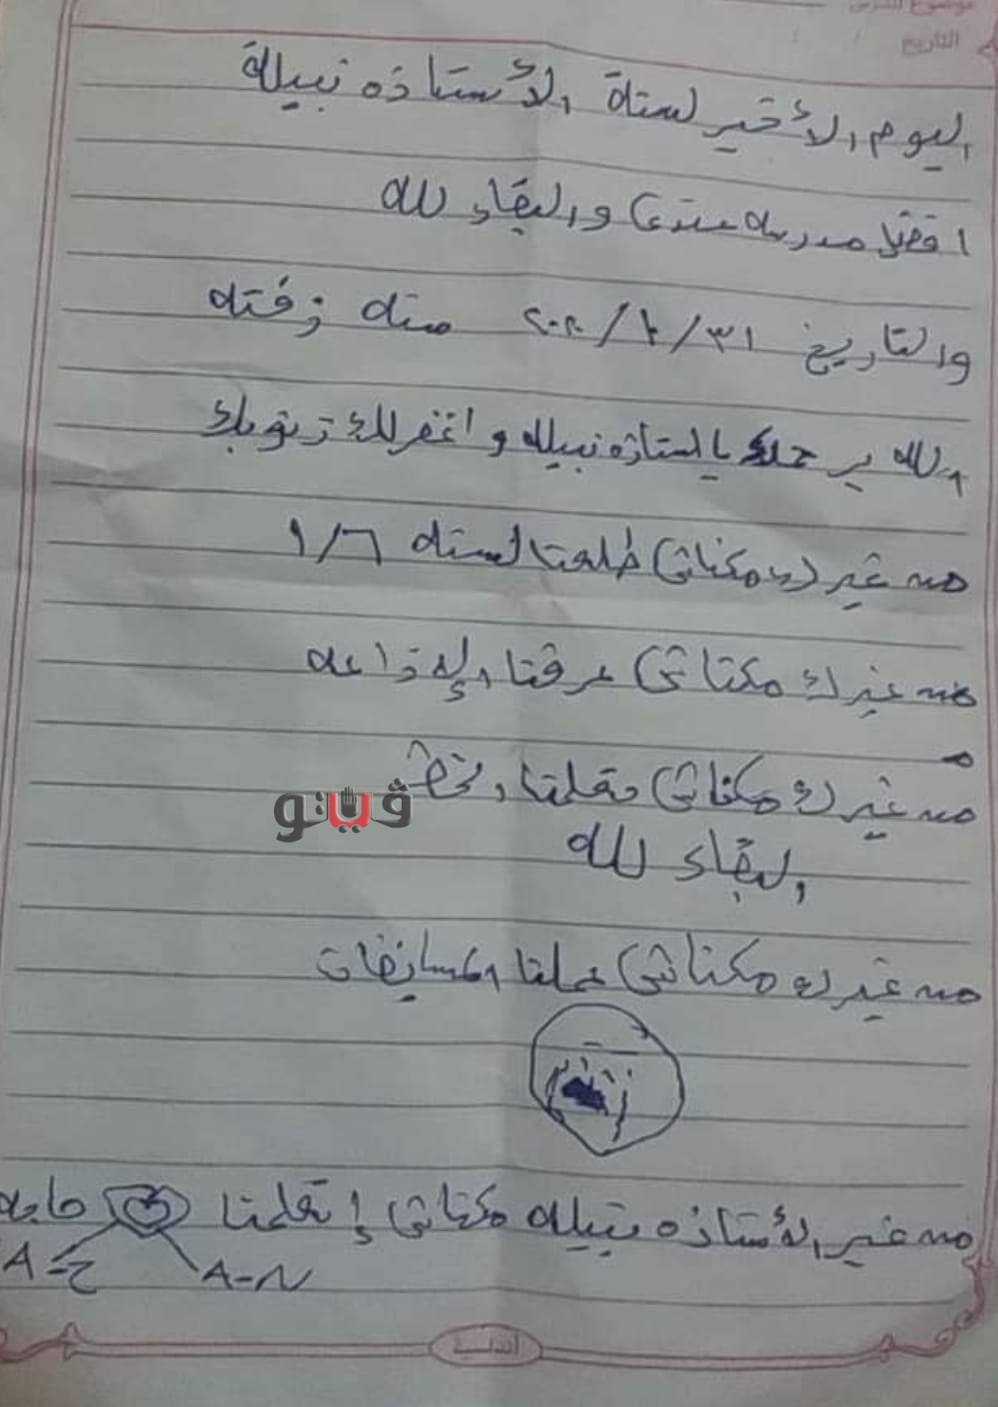 موضوع الدرس
التاريخ / /
اليوم الأخير لستة الأستاذه نبيلة
افضل مدرسه عندى والبقاء لله
والتاريخ ٣١/٢/٢٠٢٠ سنه زفته
الله يرحمك يا استازه نبيله واغفرلك زنوبك
منه غيرك مكناش طلعنا لسنه ١/٦
منه غيرك مكناش عرفنا الإذاعه
منه غيرك مكناش تعلمنا
البقاء لله
فيتو
منه غيرك مكناش عملنا المسابقات
منه غير الأستازه نبيله مكناش إتعلمنا حاجه
A-ح A-N
أندلسية